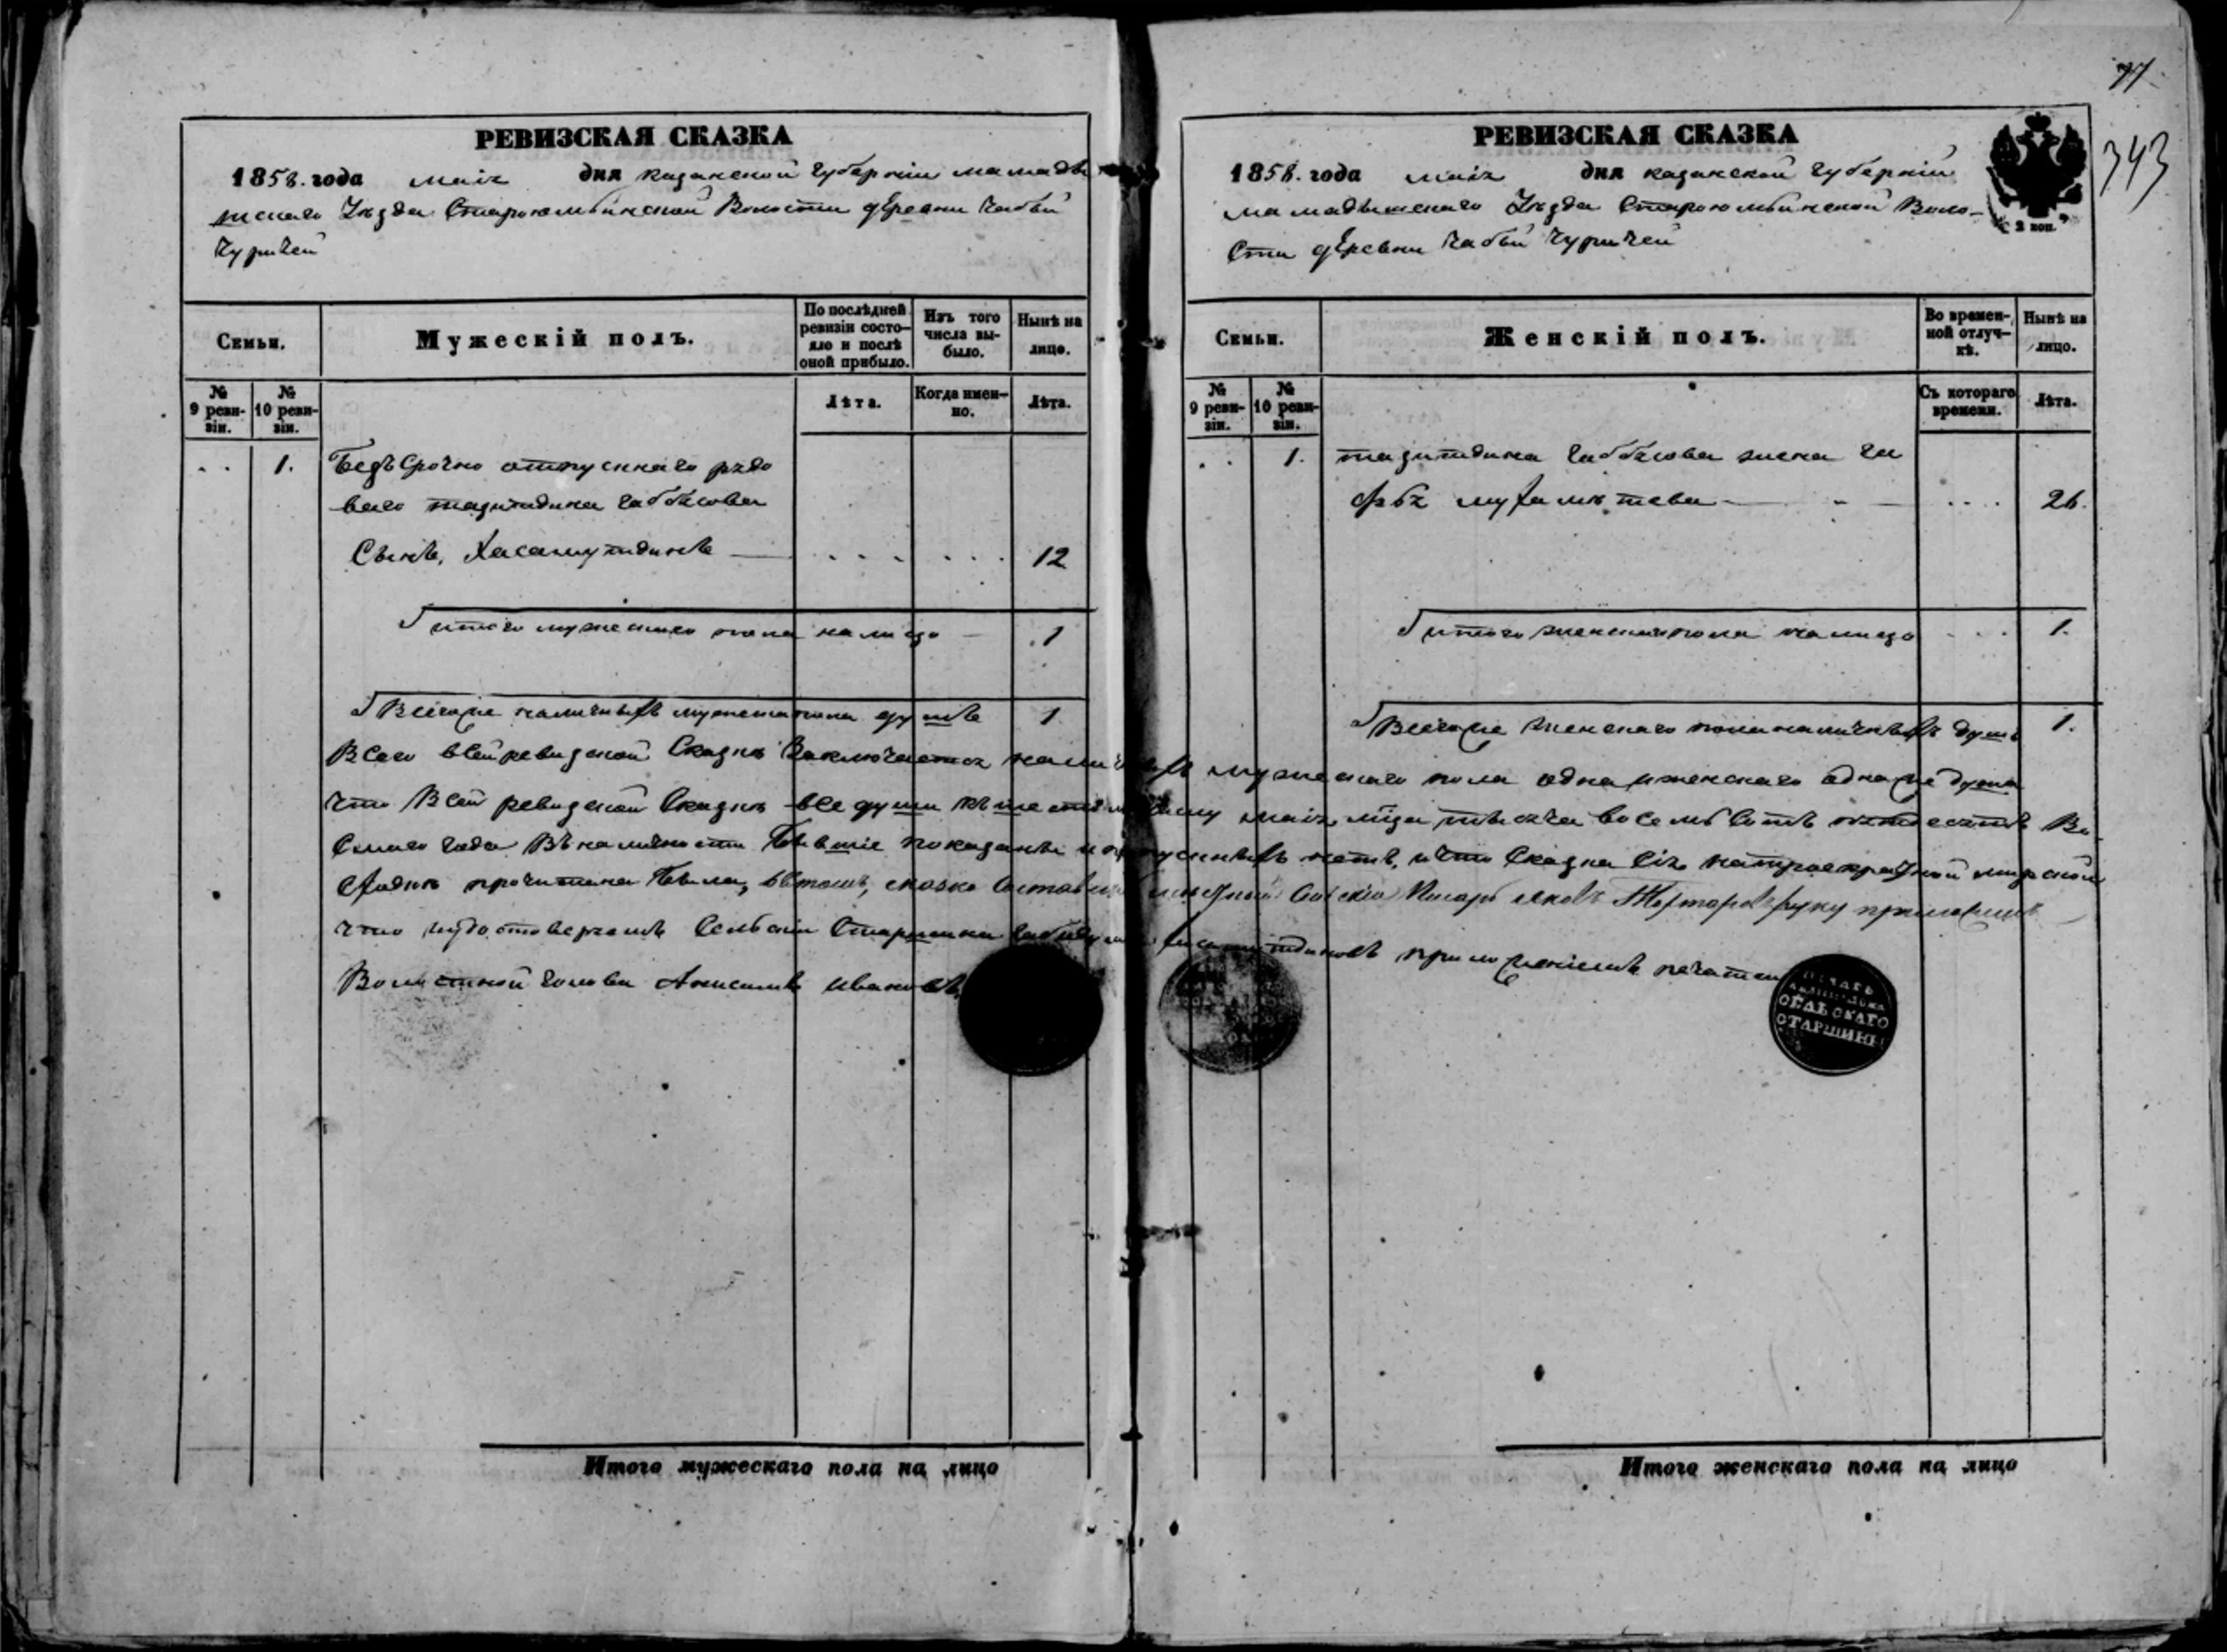 77.
343
РЕВИЗСКАЯ СКАЗКА
1858. года маія дня казанской губерніи мамады
шскаго Уѣзда Староюмьинской Волости деревни Чабьи
Чуричей
Семьи.
Мужескій полъ.
По послѣдней ревизіи состо-яло и послѣ оной прибыло.
Изъ того числа вы-было.
Нынѣ на лицо.
№ 9 реви-зіи.
№ 10 реви-зіи.
Лѣта.
Когда имен-но.
Лѣта.
1. Безъсрочно отпускнаго рядо
ваго тазитдина габбясова
Сынъ, Хасамутдинъ 12
итого мужескаго пола налицо 1
Всегоже наличныхъ мужескапола душъ 1
РЕВИЗСКАЯ СКАЗКА
1858. года маія дня казанской губерніи
мамадышскаго Уѣзда Староюмьинской Воло-
сти деревни Чабьи Чуричей
2 коп.
Семьи.
Женскій полъ.
Во времен-ной отлуч-кѣ.
Нынѣ на лицо.
№ 9 реви-зіи.
№ 10 реви-зіи.
Съ котораго времени.
Лѣта.
1. тазитдина габбясова жена
26.
итого женскаго пола налицо 1.
Всегоже женскаго пола наличныхъ душъ 1.
Всего всейревизской Сказкѣ Заключается мужескаго пола одна иженскаго однаже душа
что Всей ревизской Сказкѣ все души маія тысяча восемь Сотъ пятдесятъ Во
Смаго года Въналичности Бывшіе показаны нетъ, ичто Сказка Сія мирской
Сходкѣ прочитана была, вътомъ, сказко Писарь Яковъ руку приложилъ
что иудостоверяемъ Сельскій Старшина приложеніемъ печати
Волостной голова Анисимъ Ивановъ
СЕЛЬСКАГО
СТАРШИНЫ
Итого мужескаго пола на лицо
Итого женскаго пола на лицо